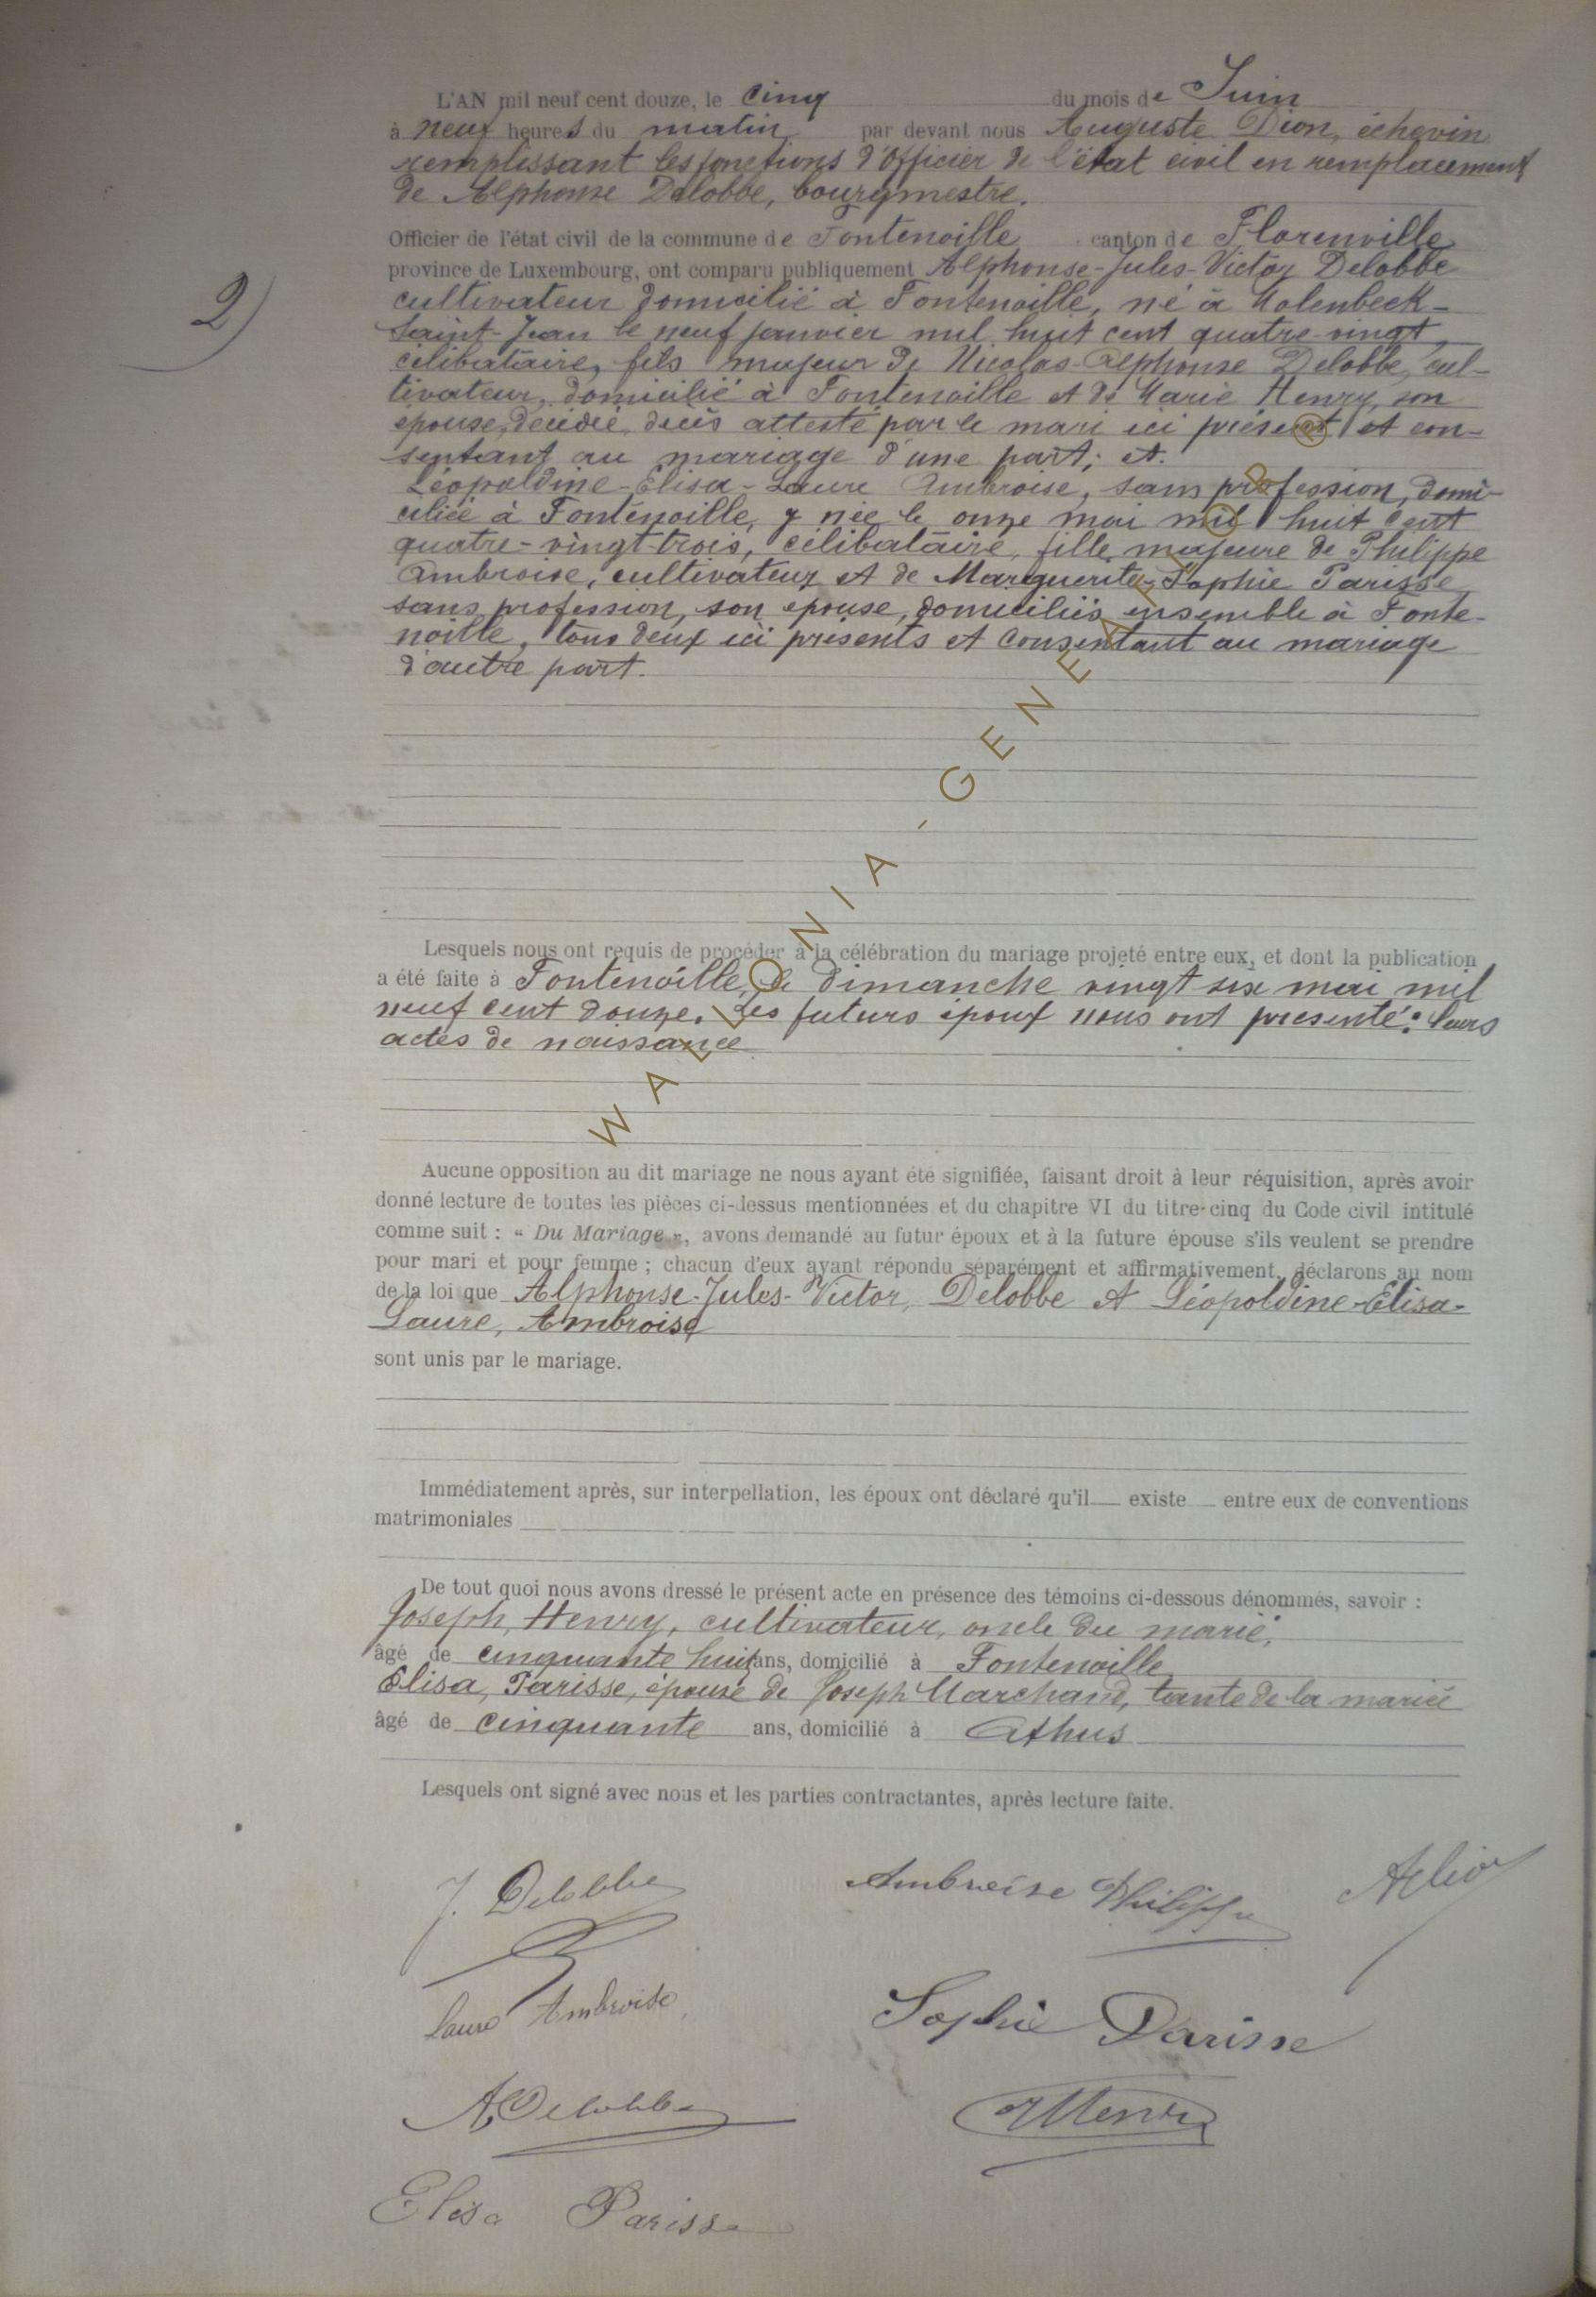 2)
L'AN mil neuf cent douze, le cinq du mois de Juin
à neuf heures du matin par devant nous Auguste Dion, échevin
remplissant les fonctions d'Officier de l'état civil en remplacement
de Alphonse Delobbe, bourgmestre.
Officier de l'état civil de la commune de Fontenoille canton de Florenville
province de Luxembourg, ont comparu publiquement Alphonse-Jules-Victor Delobbe
cultivateur domicilié à Fontenoille, né à Molenbeek-
Saint-Jean le neuf janvier mil huit cent quatre-vingt,
célibataire, fils majeur de Nicolas-Alphonse Delobbe, cul-
tivateur, domicilié à Fontenoille et de Marie Henry, son
épouse, décédée, décès attesté par le mari ici présent et con-
sentant au mariage d'une part; et.
Léopoldine-Elisa-Laure Ambroise, sans profession, domi-
ciliée à Fontenoille, y née le onze mai mil huit cent
quatre-vingt-trois, célibataire, fille majeure de Philippe
Ambroise, cultivateur et de Marguerite-Sophie Parisse
sans profession, son épouse, domiciliés ensemble à Fonte-
noille, tous deux ici présents et consentant au mariage
d'autre part.
Lesquels nous ont requis de procéder à la célébration du mariage projeté entre eux, et dont la publication
a été faite à Fontenoille, le dimanche vingt six mai mil
neuf cent douze. Les futurs époux nous ont présenté: leurs
actes de naissance
Aucune opposition au dit mariage ne nous ayant été signifiée, faisant droit à leur réquisition, après avoir
donné lecture de toutes les pièces ci-dessus mentionnées et du chapitre VI du titre-cinq du Code civil intitulé
comme suit : « Du Mariage », avons demandé au futur époux et à la future épouse s'ils veulent se prendre
pour mari et pour femme ; chacun d'eux ayant répondu séparément et affirmativement, déclarons au nom
de la loi que Alphonse-Jules-Victor, Delobbe et Léopoldine-Elisa-
Laure, Ambroise
sont unis par le mariage.
Immédiatement après, sur interpellation, les époux ont déclaré qu'il existe entre eux de conventions
matrimoniales
De tout quoi nous avons dressé le présent acte en présence des témoins ci-dessous dénommés, savoir :
Joseph, Henry, cultivateur, oncle du marié,
âgé de cinquante huit ans, domicilié à Fontenoille
Elisa, Parisse, épouse de Joseph Marchand, tante de la mariée
âgé de cinquante ans, domicilié à Athus
Lesquels ont signé avec nous et les parties contractantes, après lecture faite.
J. Delobbe Ambroise Philippe
Laure Ambroise Sophie Parisse
A Delobbe JHenry
Elisa Parisse
WALLONIA-GENEALOGIE